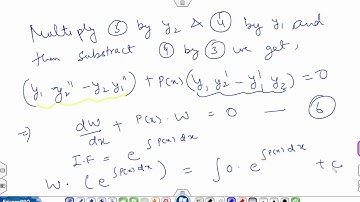 Multiply ③ by y₂ & ④ by y₁ and
then substract ④ by ③ we get,
(y₁ y₂'' - y₂ y₁'') + P(x) (y₁ y₂' - y₁' y₂) = 0
⇒ dW/dx + P(x) · W = 0 — ⑥
I.F = e^∫P(x)dx
W · (e^∫P(x)dx) = ∫0 · e^∫P(x)dx + c